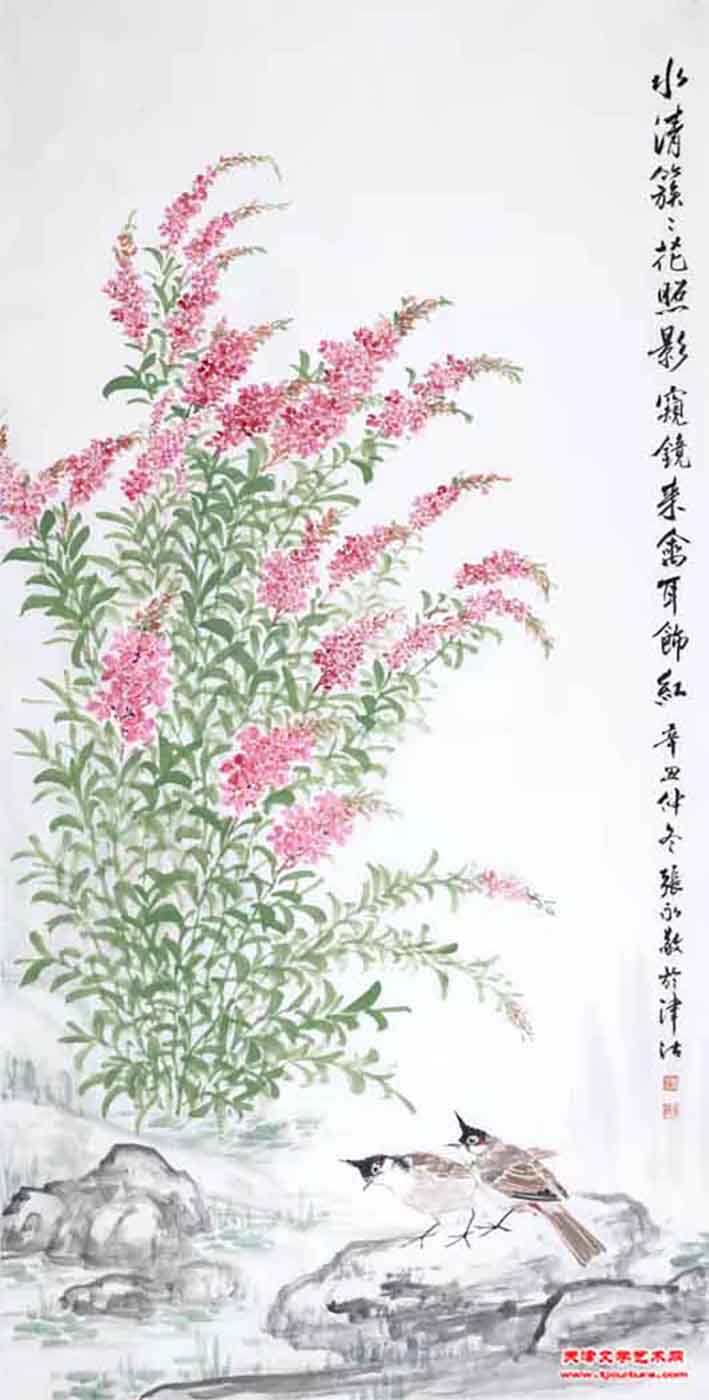 水清簇〻花照影 窥鏡来禽耳飾紅 辛丑仲冬 張永敬於津沽
天津文学艺术网
www.tjculture.com